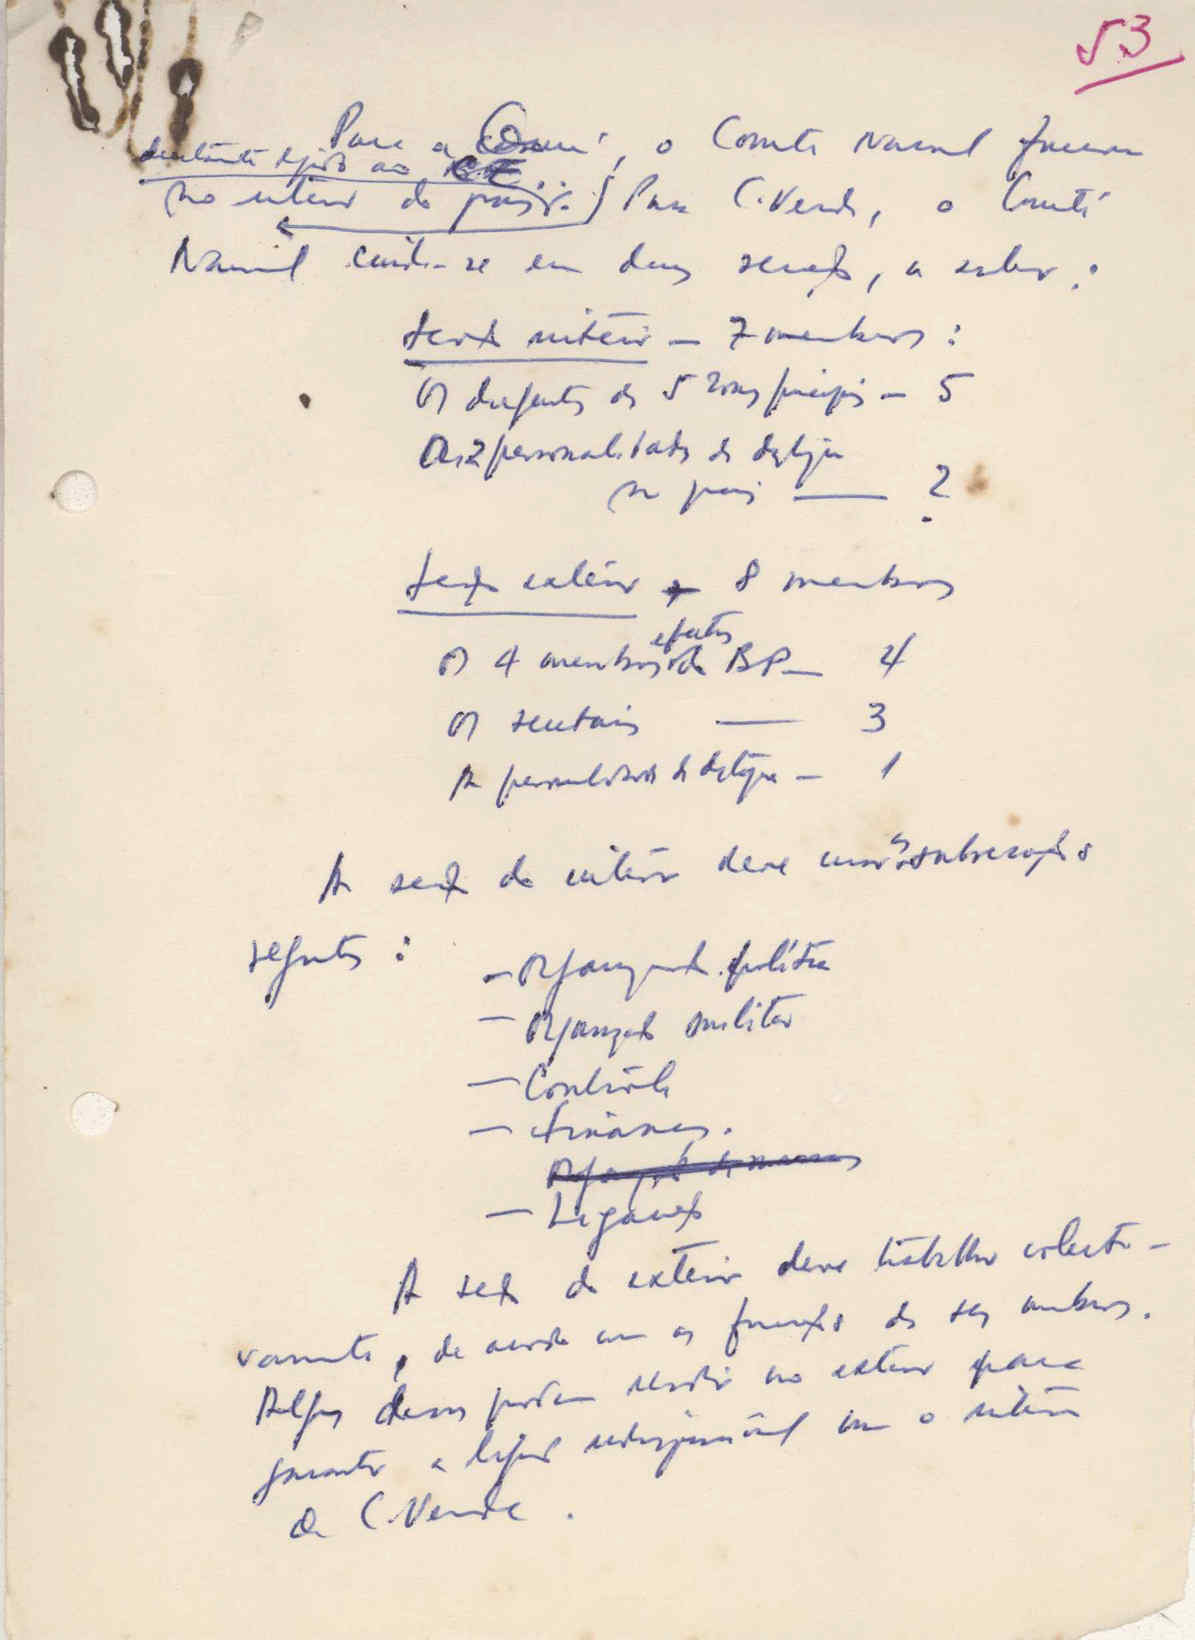 53
Para a Guiné, o Comité Nacional funciona
directamente ligado ao C.E.
no interior do país. Para C. Verde, o Comité
Nacional divide-se em duas secções, a saber:
Secção interior — 7 membros:
Os dirigentes das 5 zonas principais — 5
As 2 personalidades de destaque
no país — 2
Secção exterior — 8 membros
efectivos
Os 4 membros do BP — 4
Os secretários — 3
A personalidade de destaque — 1
A secção do interior deve as subsecções
seguintes:
— Organização política
— Organização militar
— Contrôle
— Finanças.
Organização de massas
— Ligações
A secção do exterior deve trabalhar colecti-
vamente, de acordo com as funções dos seus membros.
Alguns devem residir no exterior para
garantir a ligação indispensável com o interior
de C. Verde.